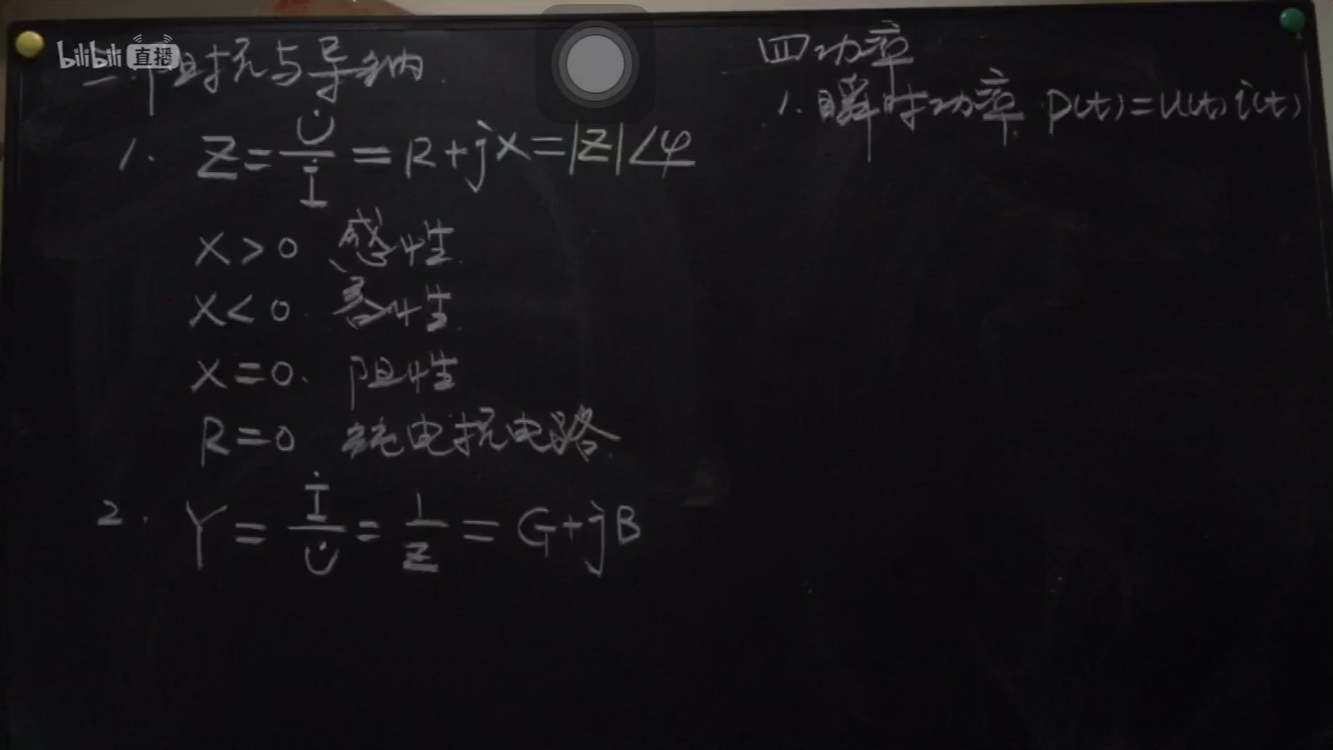 bilibili 直播
阻抗与导纳.
1. Z = U̇/İ = R+jX = |Z|∠φ
X>0 感性.
X<0 容性.
X=0. 阻性
R=0 纯电抗电路.
2. Y = İ/U̇ = 1/Z = G+jB
四功率
1. 瞬时功率. P(t)=u(t)i(t)